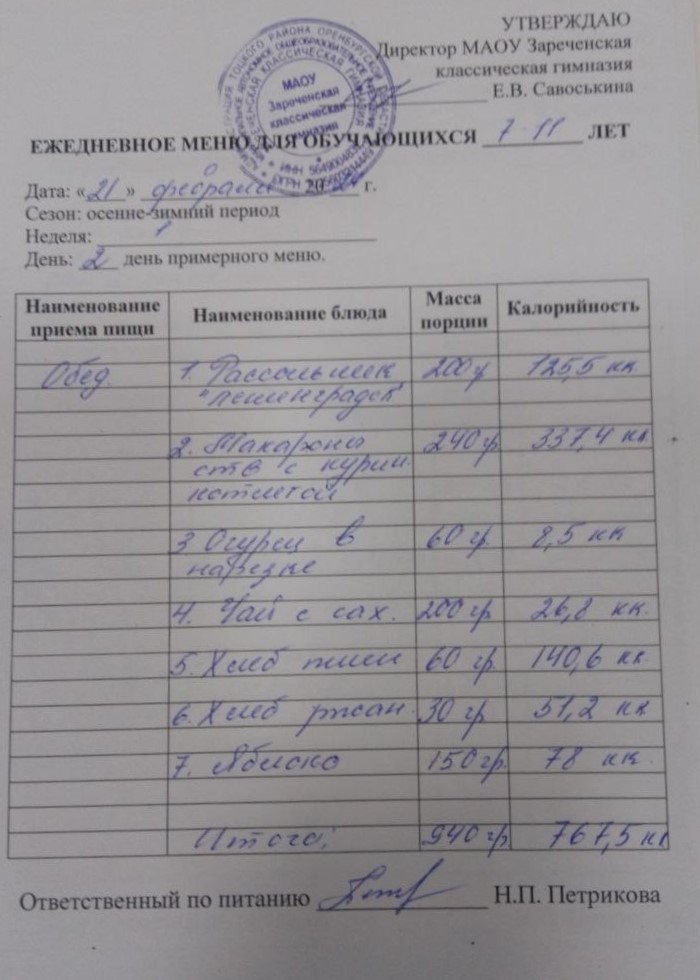 УТВЕРЖДАЮ
Директор МАОУ Зареченская
классическая гимназия
Е.В. Савоськина
МАОУ
Зареченская
классическая
гимназия
ЕЖЕДНЕВНОЕ МЕНЮ ДЛЯ ОБУЧАЮЩИХСЯ 7-11 ЛЕТ
Дата: «21» февраля 20 г.
Сезон: осенне-зимний период
Неделя: 1
День: 2 день примерного меню.
Наименование приема пищи Наименование блюда Масса порции Калорийность
Обед. 1. Рассольник 200г 125,5 кк.
"ленинградск"
2. Макароны 240 гр 337,4 кк
отв с курин.
котлетой
3 Огурец в 60 гр 8,5 кк
нарезке
4. Чай с сах. 200 гр 26,8 кк.
5. Хлеб пшен 60 гр. 140,6 кк.
6. Хлеб ржан. 30 гр 51,2 кк
7. Яблоко 150 гр. 78 кк.
Итого: 940 гр 767,5 кк
Ответственный по питанию Н.П. Петрикова